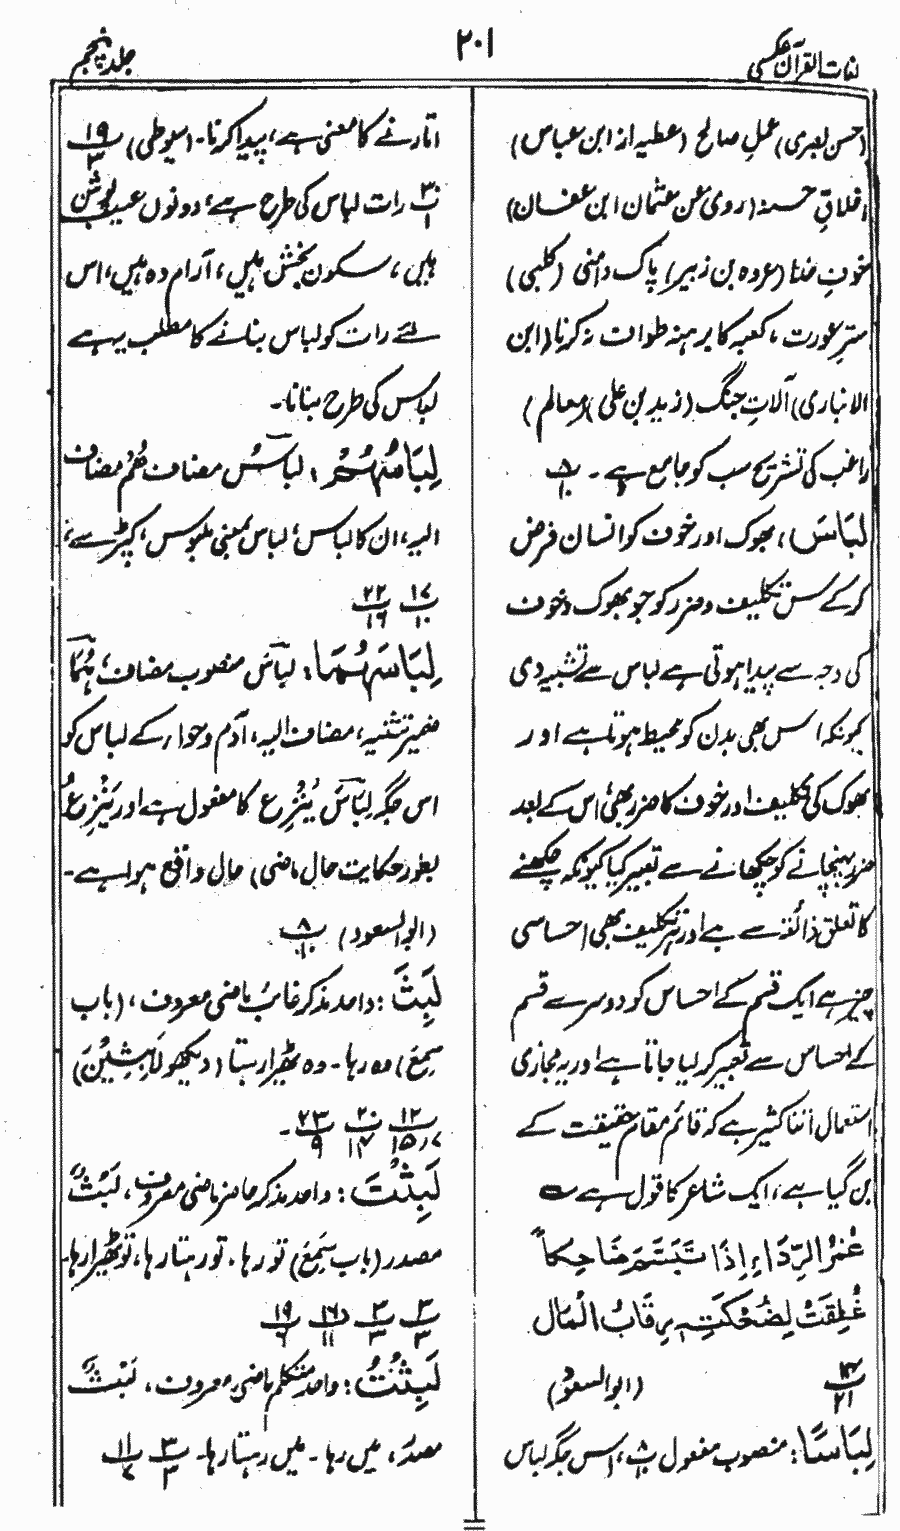 لغات القرآن عکسی
۲۰۱
جلد پنجم
(حسن بصری) عملِ صالح (عطیہ از ابن عباس)
اخلاقِ حسنہ (روی عن عثمان ابن عفان)
خوفِ خدا (عروہ بن زبیر) پاک دامنی (کلبی)
سترِ عورت، کعبہ کا برہنہ طواف نہ کرنا (ابن
الانباری) آلاتِ جنگ (زید بن علی) (معالم)
راغب کی تشریح سب کو جامع ہے ۔ ۸/۱۰
لِبَاسَ)، بھوک اور خوف کو انسان فرض
کرکے اس تکلیف و ضرر کو جو بھوک و خوف
کی وجہ سے پیدا ہوتی ہے لباس سے تشبیہ دی
کیونکہ اس بھی بدن کو محیط ہوتا ہے اور
بھوک کی تکلیف اور خوف کا ضرر بھی، اس کے بعد
ضرر پہنچانے کو چکھانے سے تعبیر کیا کیونکہ چکھنے
کا تعلق ذائقہ سے ہے اور ہر تکلیف بھی احساسی
چیز ہے ایک قسم کے احساس کو دوسرے قسم
کے احساس سے تعبیر کر لیا جاتا ہے اور یہ مجازی
استعمال اتنا کثیر ہے کہ قائم مقام حقیقت کے
بن گیا ہے، ایک شاعر کا قول ہے ؎
غَمْرُ الرِّدَاءِ اِذَا تَبَسَّمَ ضَاحِکًا
غُلِقَتْ لِضَحْکَتِہٖ رِقَابُ الْمَالِ
۱۴/۲۱ (ابو السعود)
لِبَاسًا: منصوب مفعول ب۸، اس جگہ لباس
اتارنے کا معنی ہے، پیدا کرنا۔ (سیوطی) ۱۹/۳
۳۰/۱ رات لباس کی طرح ہے، دونوں عیب پوش
ہیں، سکون بخش ہیں، آرام دہ ہیں، اس
لئے رات کو لباس بنانے کا مطلب یہ ہے
لباس کی طرح بنانا۔
لِبَاسُهُمْ: لباسُ مضاف ھُمْ مضاف
الیہ، ان کا لباس، لباس بمعنی ملبوس، کپڑے،
۱۷/۱۰ ۲۲/۱۶
لِبَاسَهُمَا: لباسَ منصوب مضاف، ہُمَا
ضمیر تثنیہ، مضاف الیہ، آدم و حوا کے لباس کو
اس جگہ لِبَاسَ یَنْزِعُ کا مفعول ہے اور یَنْزِعُ
بطور حکایت حال ماضی) حال واقع ہوا ہے۔
(ابو السعود) ۸/۱۰
لَبِثَ: واحد مذکر غائب ماضی معروف، (باب
سَمِعَ) وہ رہا۔ وہ ٹھیرا رہتا (دیکھو لَابِثِيْنَ)
۱۲/۱۵،۷ ۲۰/۱۴ ۲۳/۹ ۔
لَبِثْتَ: واحد مذکر حاضر ماضی معروف، لَبْثٌ
مصدر (باب سَمِعَ) تو رہا، تو رہتا رہا، تو ٹھیرا رہا،
۳/۳ ۳/۳ ۱۶/۱۱ ۱۹/۶
لَبِثْتُ: واحد متکلم ماضی معروف، لَبْثٌ
مصدر، میں رہا۔ میں رہتا رہا۔ ۳/۳ ۱۱/۷